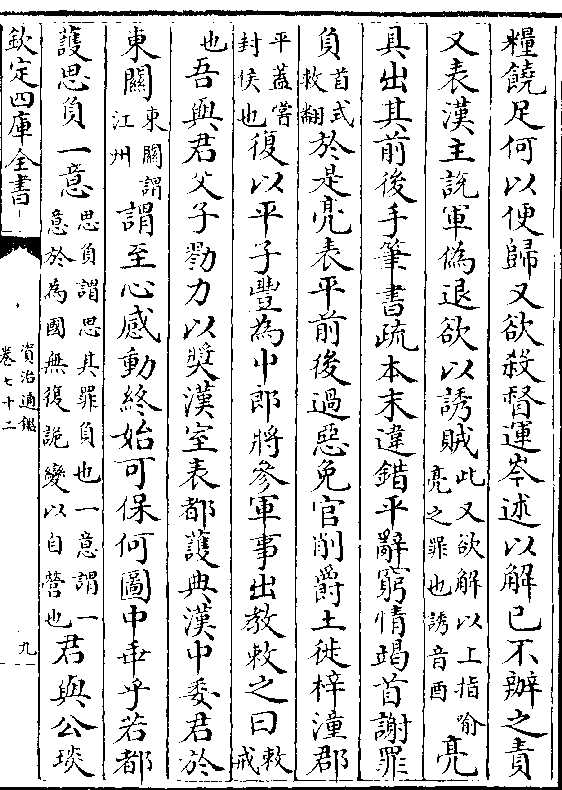 糧饒足何以便歸又欲殺督運岑述以解已不辦之責
又表漢主説軍偽退欲以誘賊此又欲解以上指喻亮之罪也誘音酉亮
具出其前後手筆書疏本末違錯平辭窮情竭首謝罪
負首式救翻於是亮表平前後過惡免官削爵土徙梓潼郡
平蓋嘗封侯也復以平子豐為中郎將參軍事出教敕之曰敕戒
也吾與君父子勠力以奬漢室表都護典漢中委君於
東關東關謂江州謂至心感動終始可保何圖中乖乎若都
護思負一意思負謂思其罪負也一意謂一意於為國無復詭變以自營也君與公琰
欽定四庫全書
資治通鑑
卷七十二
九